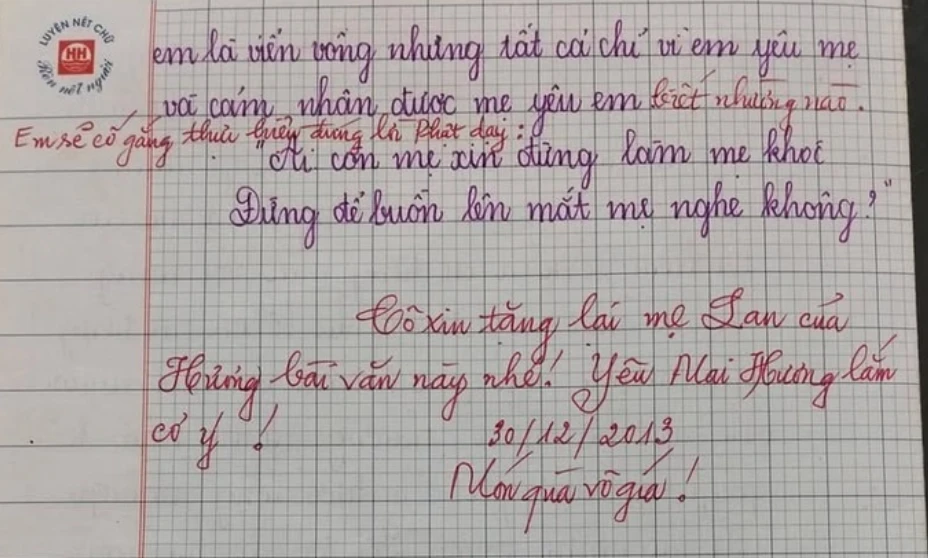 LUYỆN NÉT CHỮ
HH
Rèn nết người
em là viển vông nhưng tất cả chỉ vì em yêu mẹ
và cảm nhận được mẹ yêu em biết nhường nào.
Em sẽ cố gắng thực hiện đúng lời Phật dạy:
"Ai còn mẹ xin đừng làm mẹ khóc
Đừng để buồn lên mắt mẹ nghe không?"
Cô xin tặng lại mẹ Lan của
Hương bài văn này nhé! Yêu Mai Hương lắm
cơ ý!
30/12/2013
Món quà vô giá!